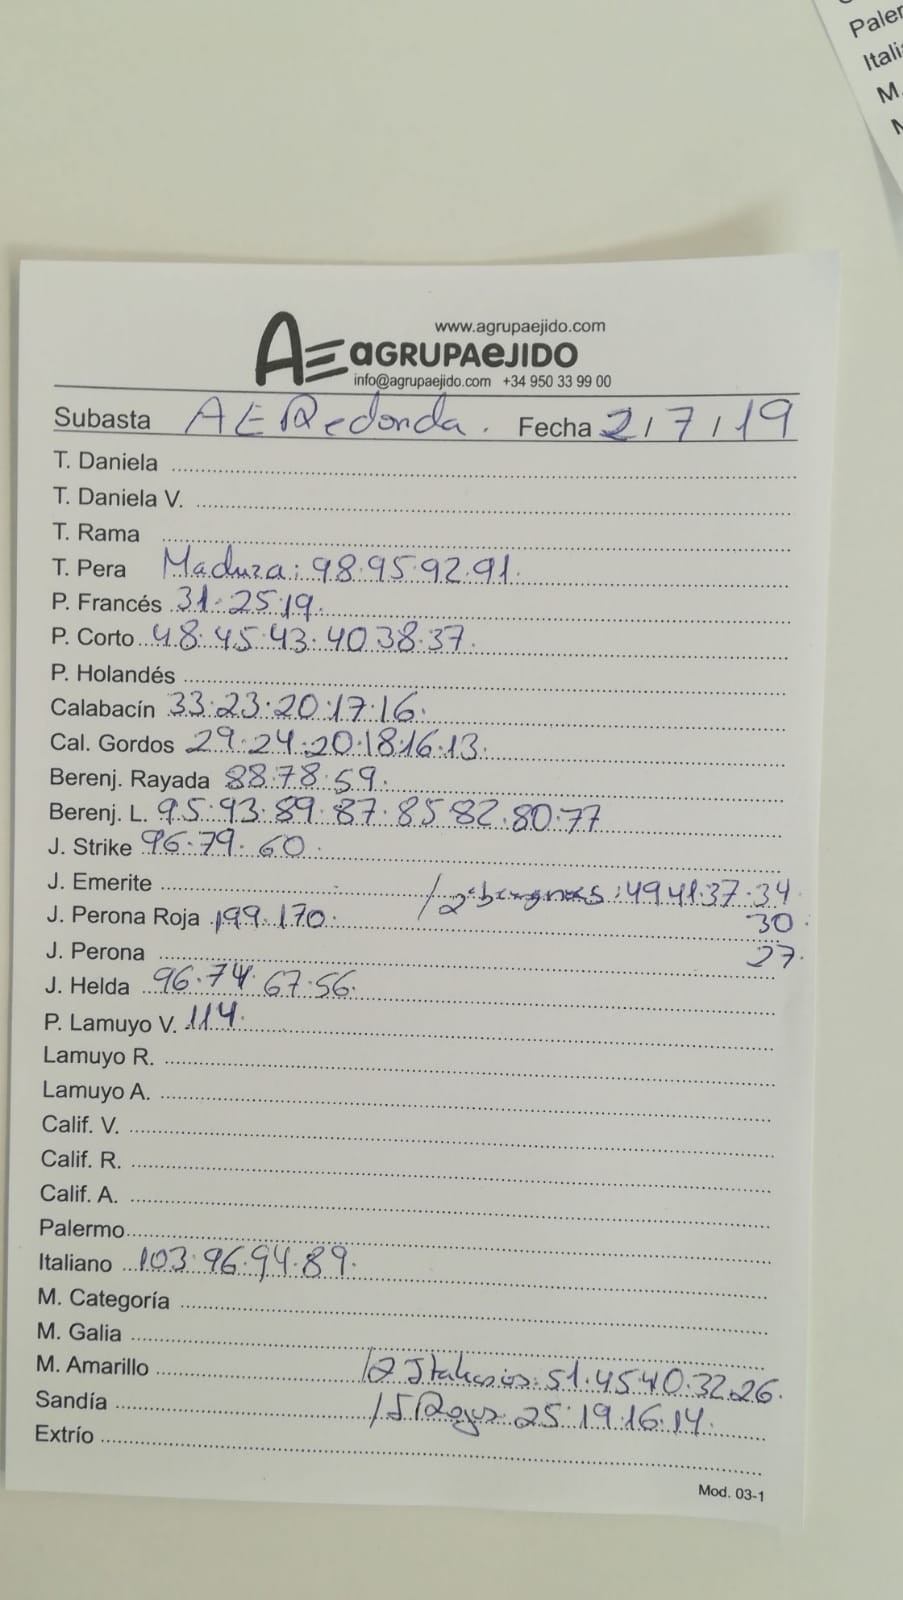 Paler
Itali
M.
www.agrupaejido.com
AE aGRUPAeJIDO
info@agrupaejido.com +34 950 33 99 00
Subasta AE Redonda. Fecha 2/7/19
T. Daniela
T. Daniela V.
T. Rama
T. Pera Madura: 98.95.92.91.
P. Francés 31.25.19.
P. Corto 48.45.43.40.38.37.
P. Holandés
Calabacín 33.23.20.17.16.
Cal. Gordos 29.24.20.18.16.13.
Berenj. Rayada 88.78.59.
Berenj. L. 95.93.89.87.85.82.80.77
J. Strike 96.79.60.
J. Emerite /2ª :49.41.37.34.
J. Perona Roja 199.170. 30.
J. Perona 27.
J. Helda 96.74.67.56.
P. Lamuyo V. 114.
Lamuyo R.
Lamuyo A.
Calif. V.
Calif. R.
Calif. A.
Palermo
Italiano 103.96.94.89.
M. Categoría
M. Galia
M. Amarillo /2 Italianos: 51.45.40.32.26.
Sandía / Rojos 25.19.16.14.
Extrío
Mod. 03-1